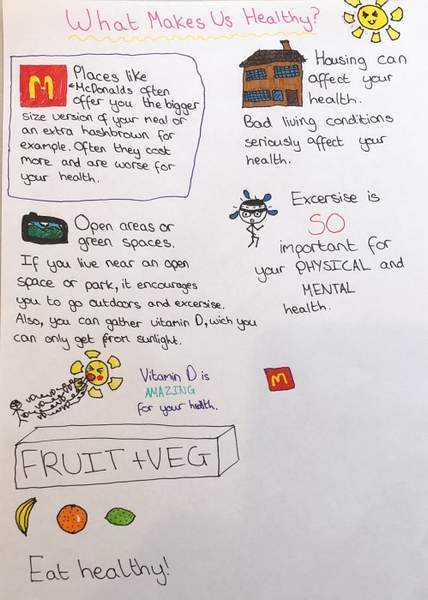 What Makes Us Healthy?
M
Places like
McDonalds often
offer you the bigger
size version of your meal or
an extra hashbrown for
example. Often they cost
more and are worse for
your health.
Housing can
affect your
health.
Bad living conditions
seriously affect your
health.
Open areas or
green spaces.
If you live near an open
space or park, it encourages
you to go outdoors and excersise.
Also, you can gather vitamin D, wich you
can only get from sunlight.
Excersise is
SO
important for
your PHYSICAL and
MENTAL
health.
Vitamin D is
AMAZING
for your health.
M
FRUIT + VEG
Eat healthy!